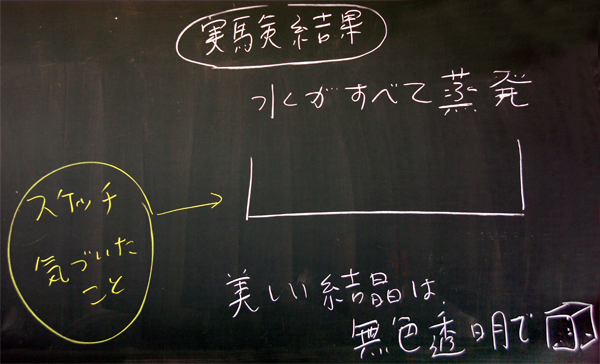 実験結果
水がすべて蒸発
スケッチ
気づいた
こと
美しい結晶は、
無色透明で